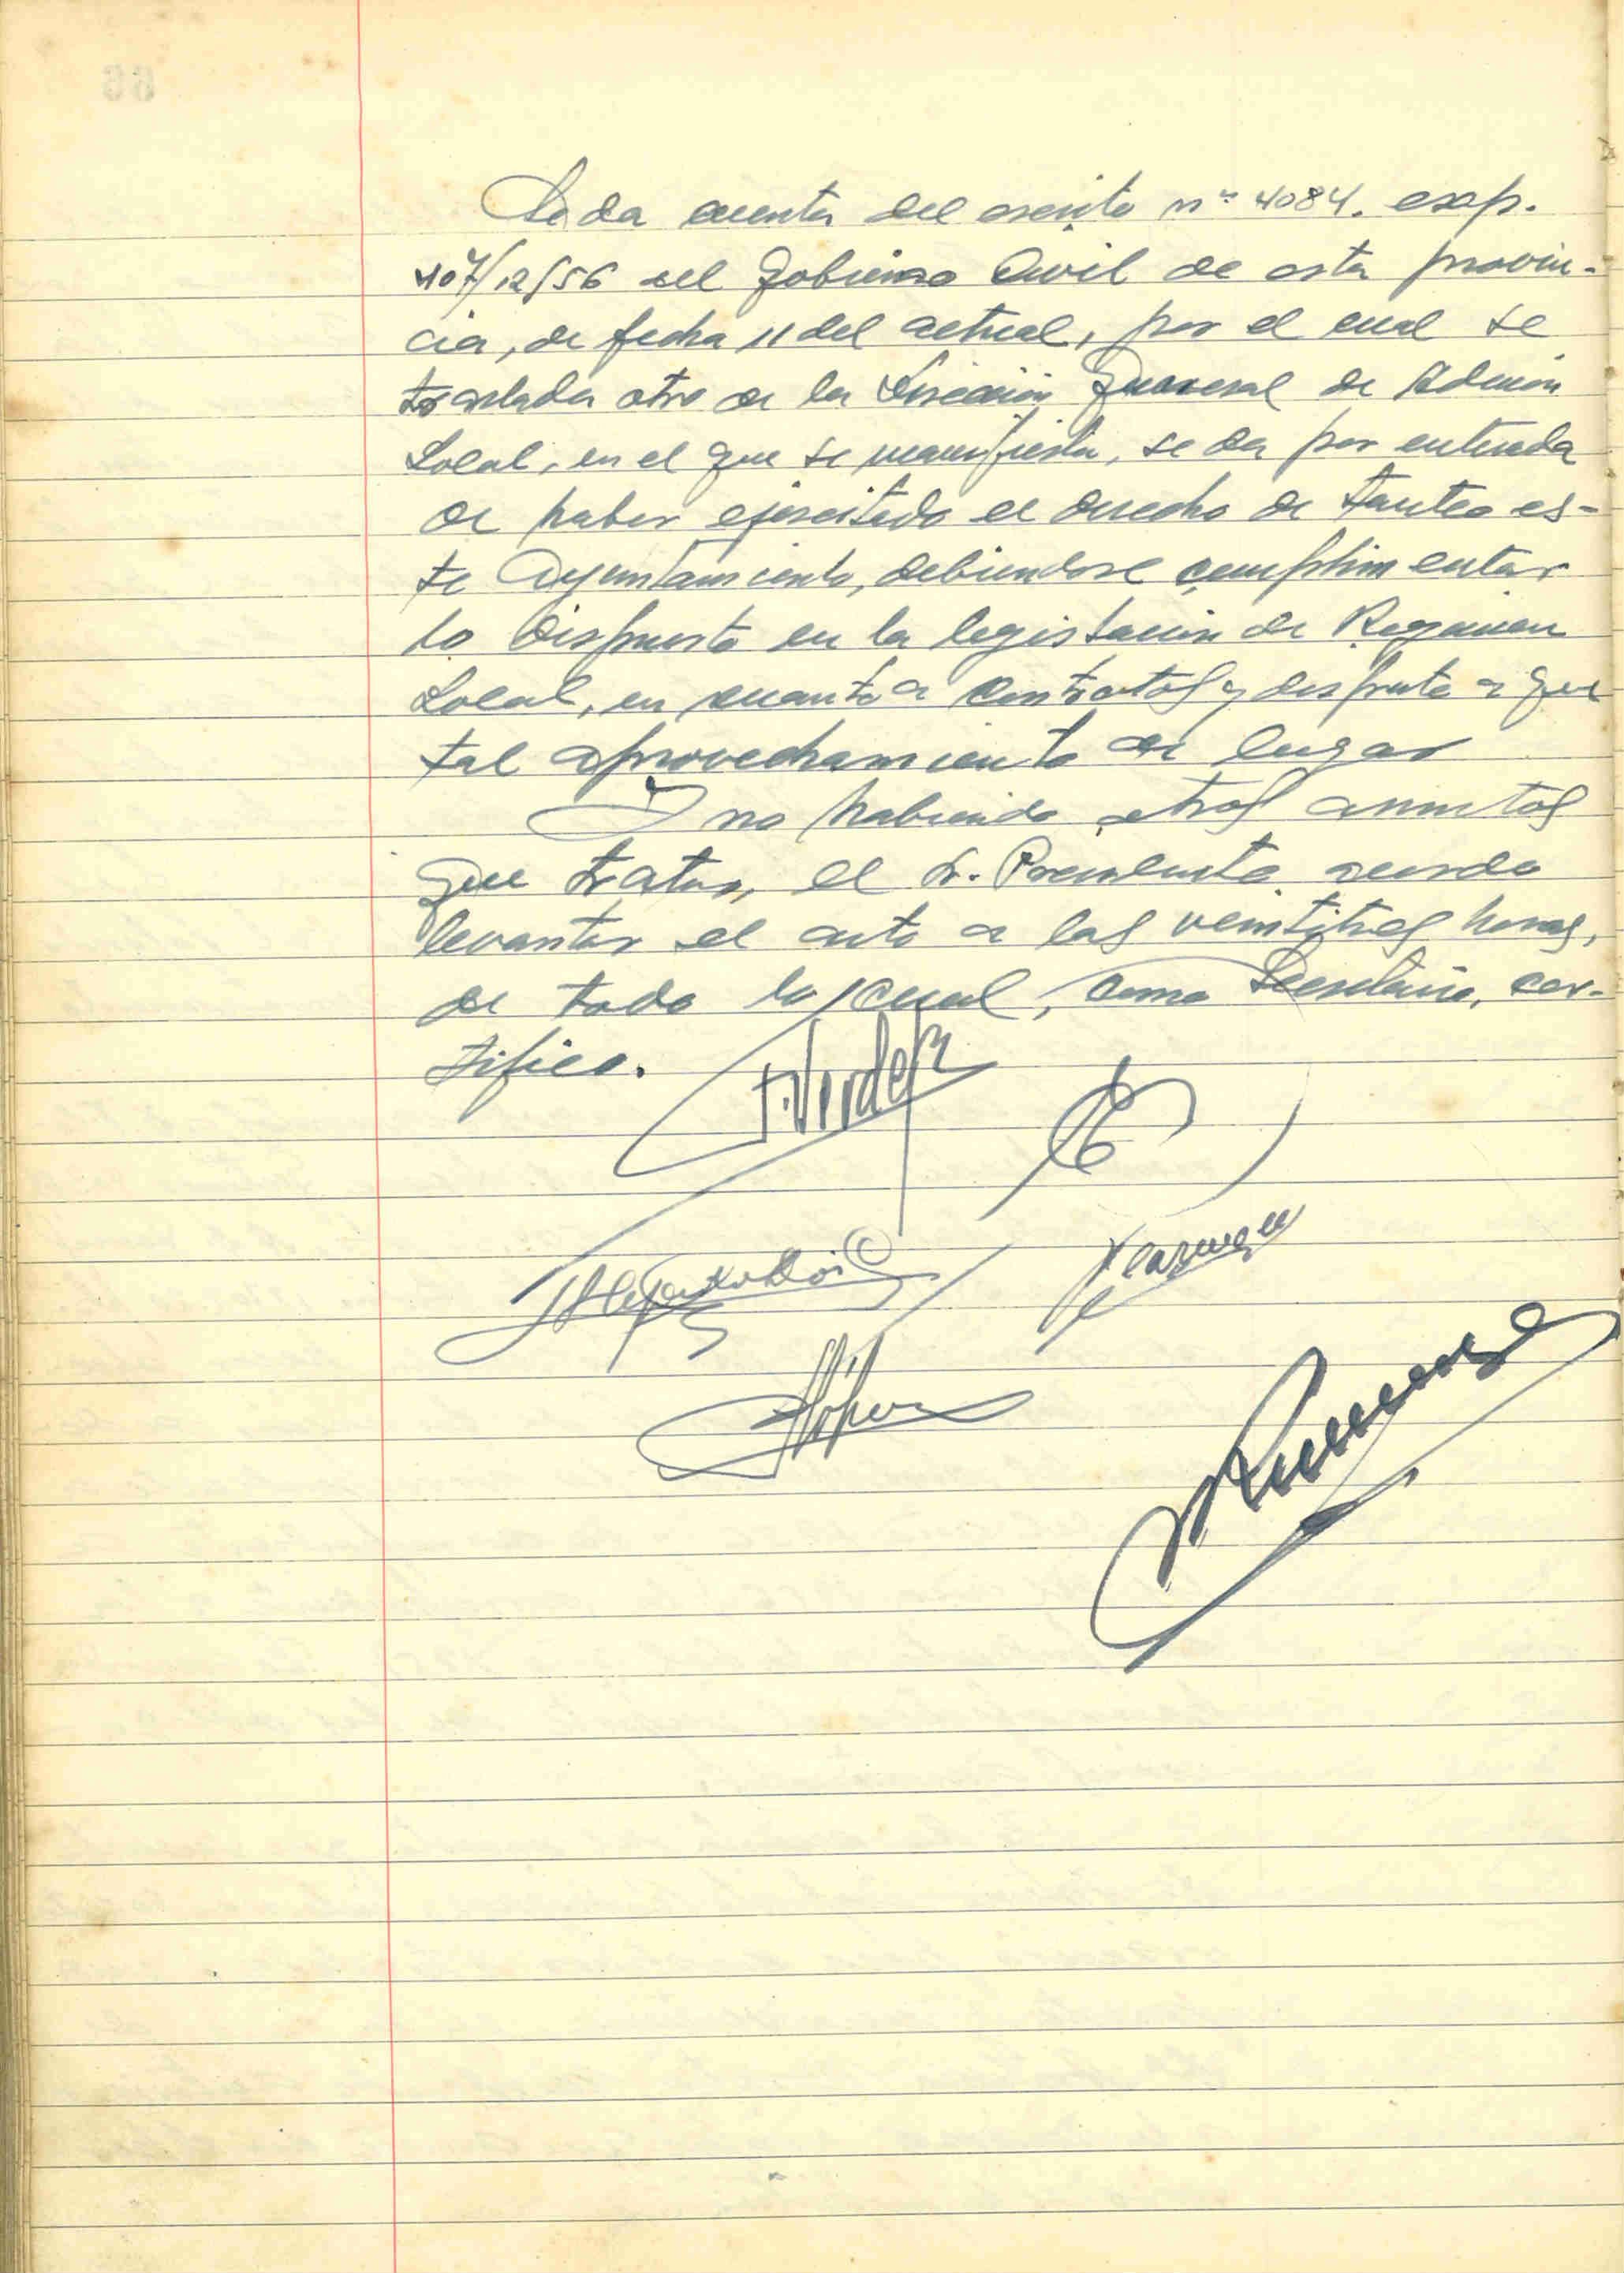 Se da cuenta del escrito nº 4084. exp.
407/12/56 del Gobierno Civil de esta provin-
cia, de fecha 11 del actual, por el cual se
traslada otro de la Dirección General de Admón
Local, en el que se manifiesta, se da por enterada
de haber ejercitado el derecho de tanteo es-
te Ayuntamiento, debiendose cumplimentar
lo dispuesto en la legislación de Regimen
Local, en cuanto a contratos y disfrute a que
tal aprovechamiento de lugar
Y no habiendo otros asuntos
que tratar, el Sr. Presidente acorda
levantar el acto a las veintitres horas,
de todo lo cual, como Secretario, cer-
tifico.